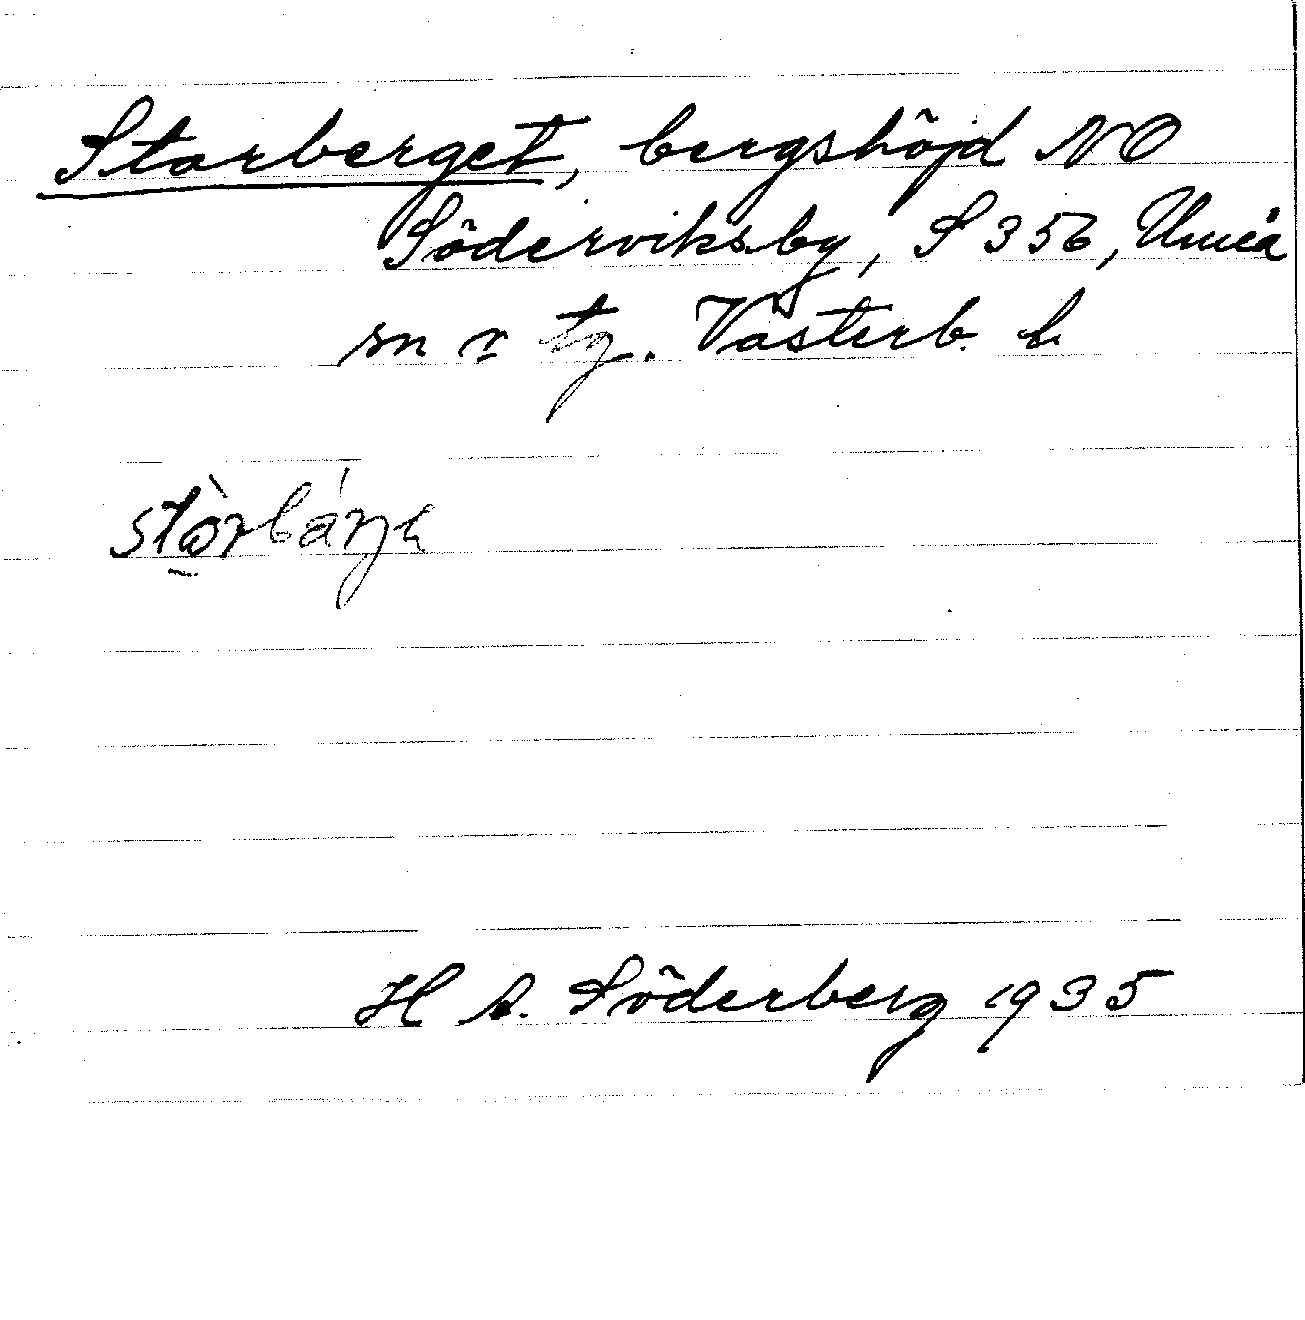 Storberget, bergshöjd NO
Söderviksby, S 356, Umeå
sn o tg. Västerb. l.
H A. Söderberg 1935